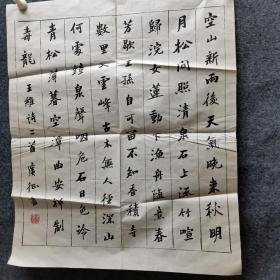 空山新雨後天氣晚來秋明
月松間照清泉石上流竹喧
歸浣女蓮動下漁舟隨意春
芳歇王孫自可留不知香積寺
數里入雲峰古木無人徑深山
何處鐘泉聲咽危石日色冷
青松薄暮空潭曲安禪制
毒龍 王維詩二首